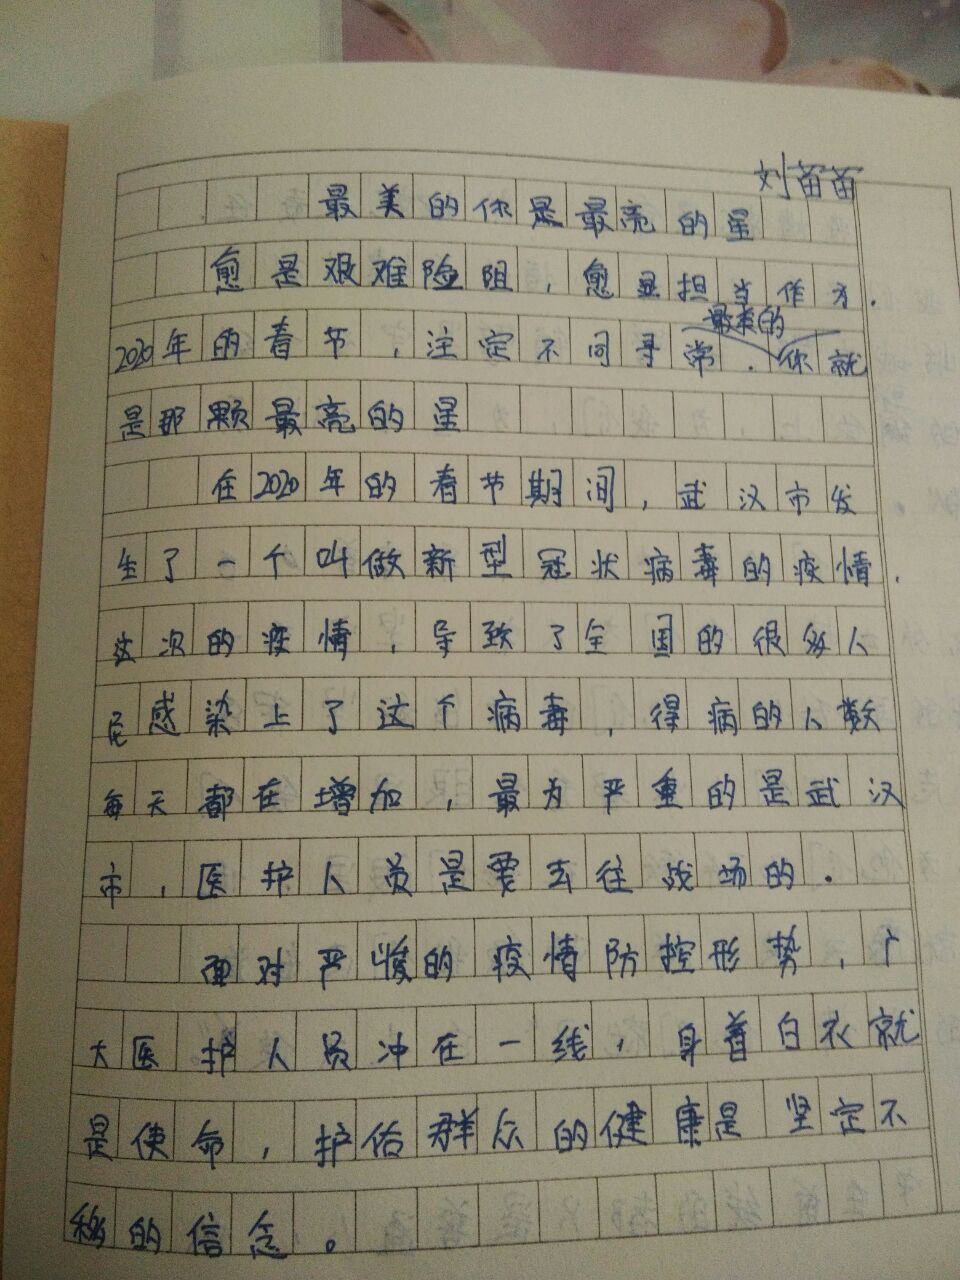 刘苗苗
最美的你是最亮的星
愈是艰难险阻，愈显担当作为.
最美的
2020年的春节，注定不同寻常.你就
是那颗最亮的星
在2020年的春节期间，武汉市发
生了一个叫做新型冠状病毒的疫情.
这次的疫情，导致了全国的很多人
民感染上了这个病毒，得病的人数
每天都在增加，最为严重的是武汉
市，医护人员是要去往战场的.
面对严峻的疫情防控形势，广
大医护人员冲在一线，身着白衣就
是使命，护佑群众的健康是坚定不
移的信念。